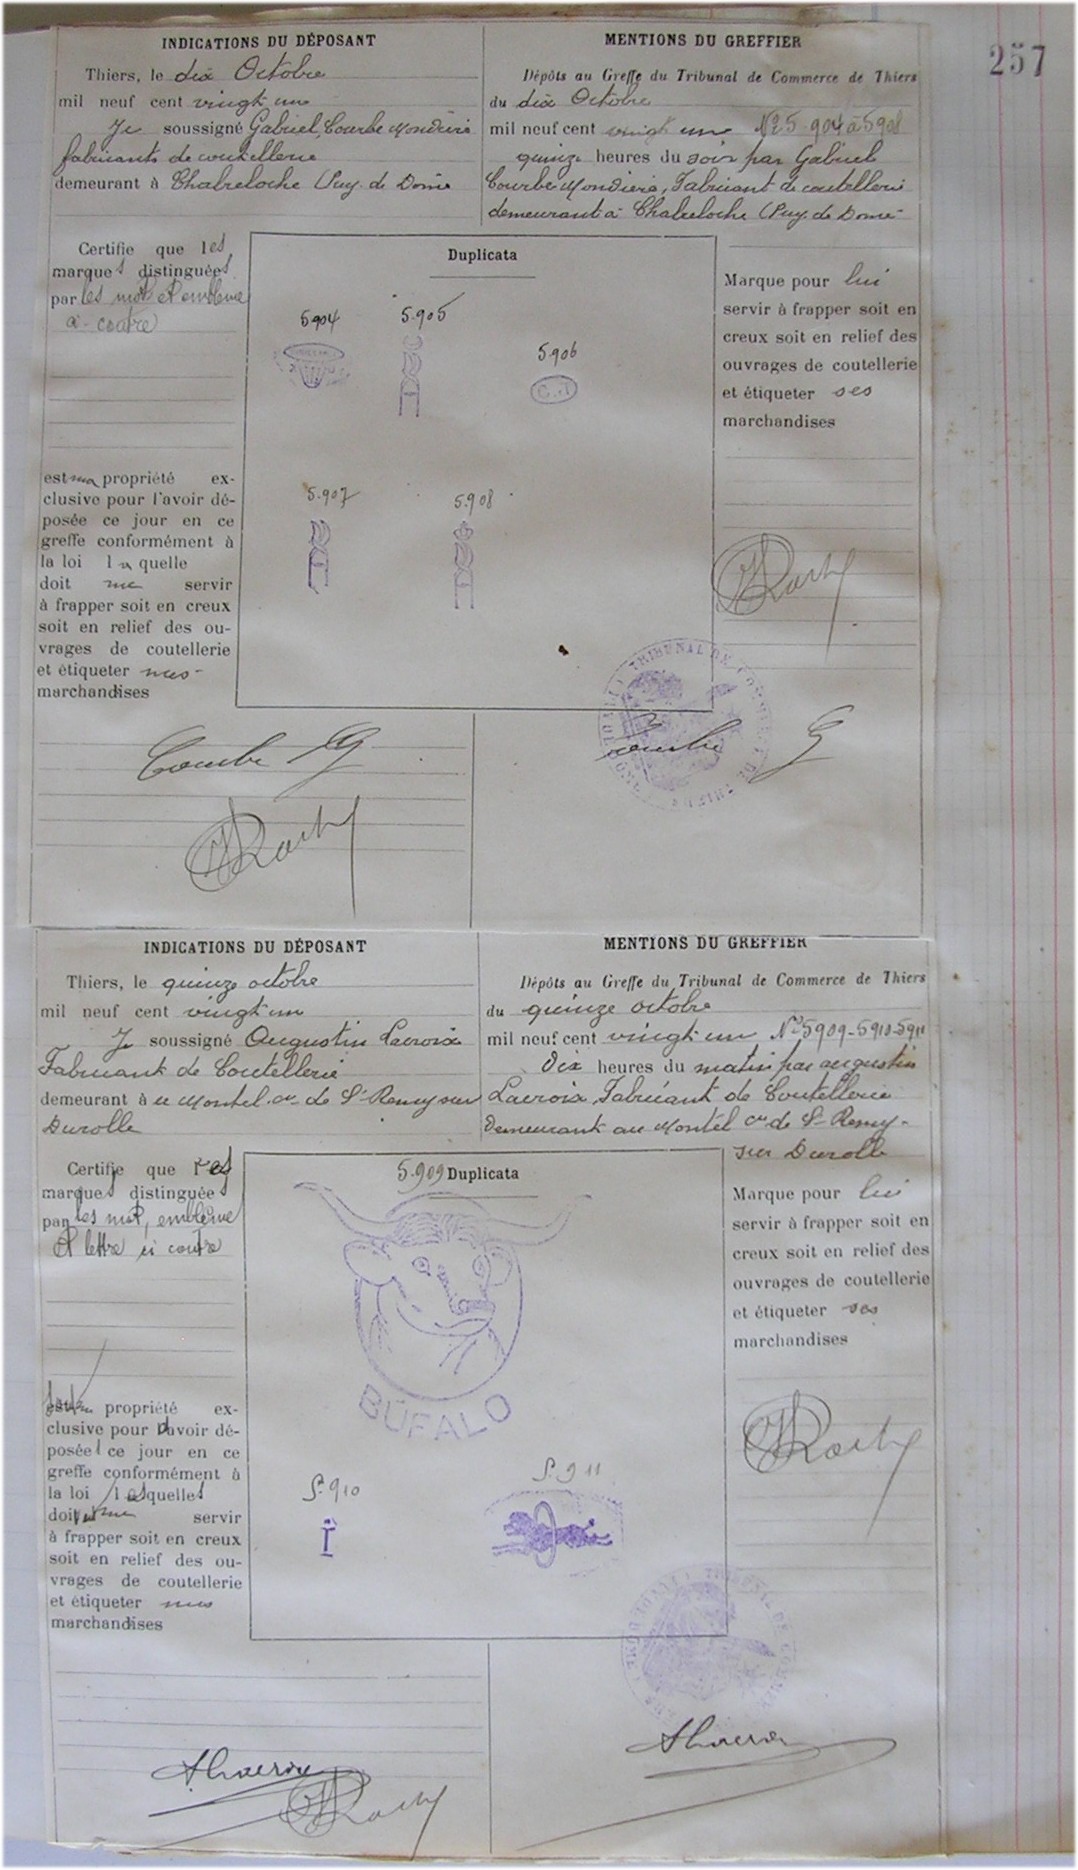 257
INDICATIONS DU DÉPOSANT
Thiers, le dix Octobre
mil neuf cent vingt un
Je soussigné Gabriel Courbe Mondière
fabricants de coutellerie
demeurant à Chabreloche Puy de Dome
Certifie que les
marques distinguées
par les mots et embleme
ci-contre
est ma propriété ex-
clusive pour l'avoir dé-
posée ce jour en ce
greffe conformément à
la loi la quelle
doit me servir
à frapper soit en creux
soit en relief des ou-
vrages de coutellerie
et étiqueter mes
marchandises
MENTIONS DU GREFFIER
Dépôts au Greffe du Tribunal de Commerce de Thiers
du dix Octobre
mil neuf cent vingt un Nos 5 904 à 5908
quinze heures du soir par Gabriel
Courbe Mondière, Fabricant de coutellerie
demeurant à Chabreloche (Puy de Dome
Duplicata
5904
5.905
5.906
5.907
5.908
Marque pour lui
servir à frapper soit en
creux soit en relief des
ouvrages de coutellerie
et étiqueter ses
marchandises
TRIBUNAL DE COMMERCE DE THIERS
Courbe G
INDICATIONS DU DÉPOSANT
Thiers, le quinze octobre
mil neuf cent vingt un
Je soussigné Augustin Lacroix
Fabricant de Coutellerie
demeurant à u Montel cne de St Remy sur
Durolle
Certifie que les
marques distinguées
par les mot, emblème
et lettre ci contre
sont ma propriété ex-
clusive pour l'avoir dé-
posées ce jour en ce
greffe conformément à
la loi lesquelles
doivent me servir
à frapper soit en creux
soit en relief des ou-
vrages de coutellerie
et étiqueter mes
marchandises
MENTIONS DU GREFFIER
Dépôts au Greffe du Tribunal de Commerce de Thiers
du quinze octobre
mil neuf cent vingt un Nos 5909-5910-5911
Dix heures du matin par augustin
Lacroix Fabricant de Coutellerie
Demeurant au Montel cne de St Remy-
sur Durolle
5.909 Duplicata
BUFALO
5.910
I
5.911
Marque pour lui
servir à frapper soit en
creux soit en relief des
ouvrages de coutellerie
et étiqueter ses
marchandises
ALacroix
ALacroix